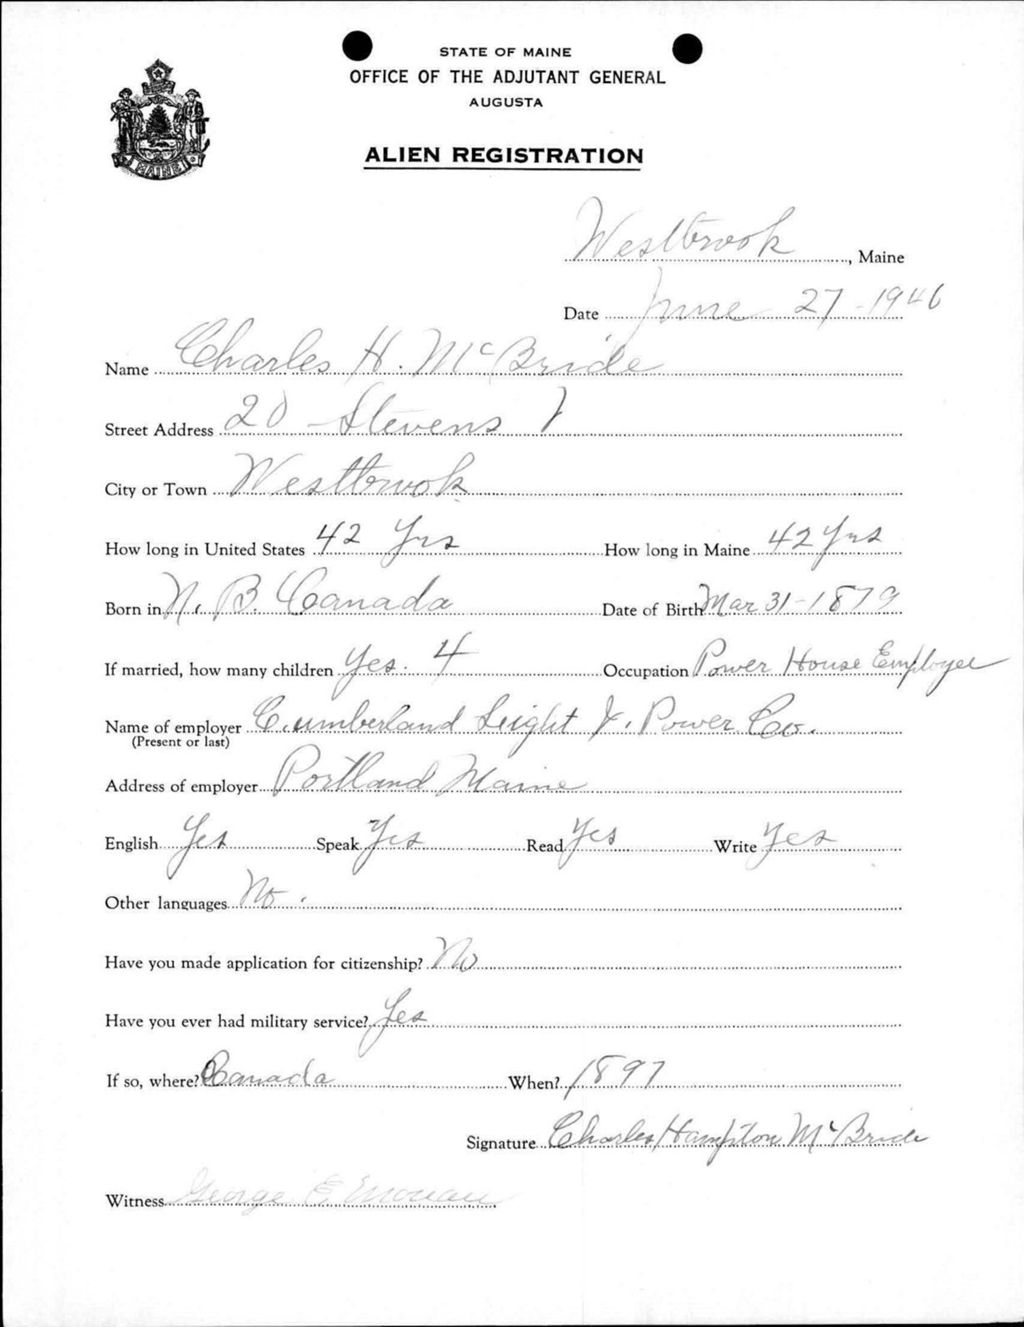 STATE OF MAINE
OFFICE OF THE ADJUTANT GENERAL
AUGUSTA
ALIEN REGISTRATION
MAINE
Westbrook, Maine
Date June 27-1946
Name Charles H. McBride
Street Address 20 - Stevens
City or Town Westbrook
How long in United States 42 Yrs How long in Maine 42 Yrs
Born in N. B. Canada Date of Birth Mar 31-1879
If married, how many children Yes. 4 Occupation Power House Employee
Name of employer Cumberland Leight & Power Co.
(Present or last)
Address of employer Portland Maine
English Yes Speak Yes Read Yes Write Yes
Other languages No.
Have you made application for citizenship? No
Have you ever had military service? Yes
If so, where? Canada When? 1897
Signature Charles Hampton McBride
Witness George E.